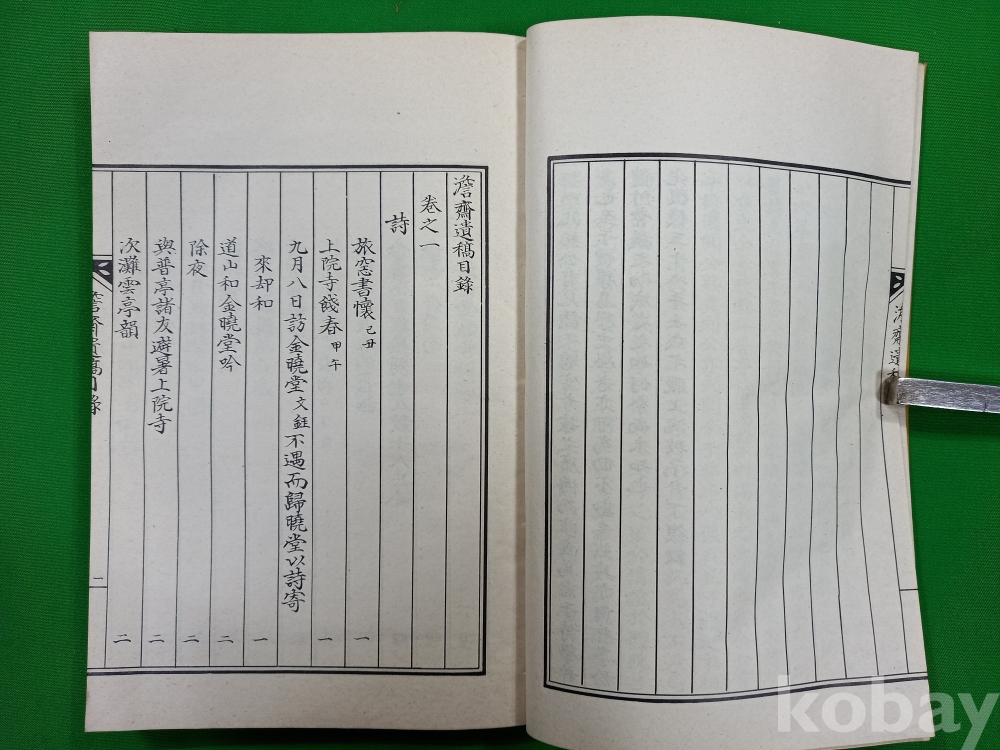 澹齋遺稿目錄
卷之一
詩
旅窓書懷 己丑 一
上院寺餞春 甲午 一
九月八日訪金曉堂 文鈺 不遇而歸曉堂以詩寄
來却和 一
道山和金曉堂吟 二
除夜 二
與普亭諸友避暑上院寺 二
次灘雲亭韻 二
澹齋遺稿目錄 一
澹齋遺
kobay